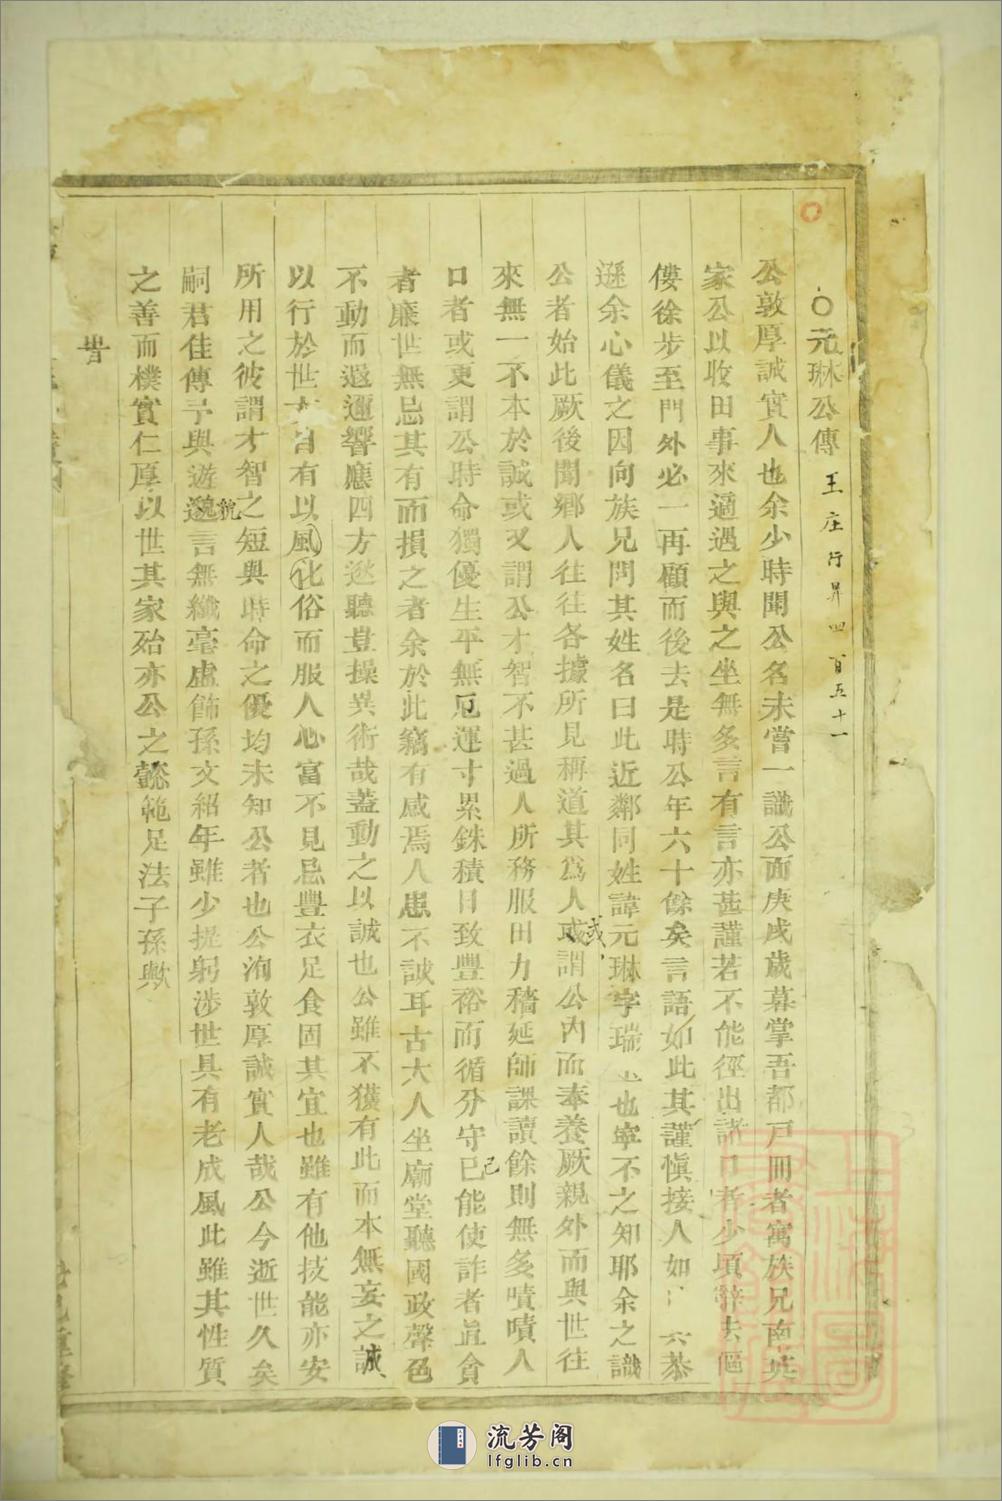 ○元琳公傳 王庄行昇四百五十一
公敦厚誠實人也余少時聞公名未嘗一識公面庚戌歲暮掌吾都戶冊者寓族兄南英
家公以收田事來適遇之與之坐無多言有言亦甚謹若不能徑出諸口者少頃辭去傴
僂徐步至門外必一再顧而後去是時公年六十餘矣言語如此其謹愼接人如 恭
遜余心儀之因向族兄問其姓名曰此近鄰同姓諱元琳字瑞 也寧不之知耶余之識
公者始此厥後聞鄉人往往各據所見稱道其爲人或謂公內而奉養厥親外而與世往
來無一不本於誠或又謂公才智不甚過人所務服田力穡延師課讀餘則無多嘖嘖人
口者或更謂公時命獨優生平無厄運寸累銖積日致豐裕而循分守己能使詐者眞貪
者廉世無忌其有而損之者余於此竊有感焉人患不誠耳古大人坐廟堂聽國政聲色
不動而遐邇響應四方逖聽豈操異術哉蓋動之以誠也公雖不獲有此而本無妄之誠
以行於世 自有以風化俗而服人心富不見忌豐衣足食固其宜也雖有他技能亦安
所用之彼謂才智之短與時命之優均未知公者也公洵敦厚誠實人哉公今逝世久矣
嗣君佳傳予與遊邈貌言無纖毫虛飾孫文紹年雖少提躬涉世具有老成風此雖其性質
之善而樸實仁厚以世其家殆亦公之懿範足法子孫歟
流芳阁
lfglib.cn